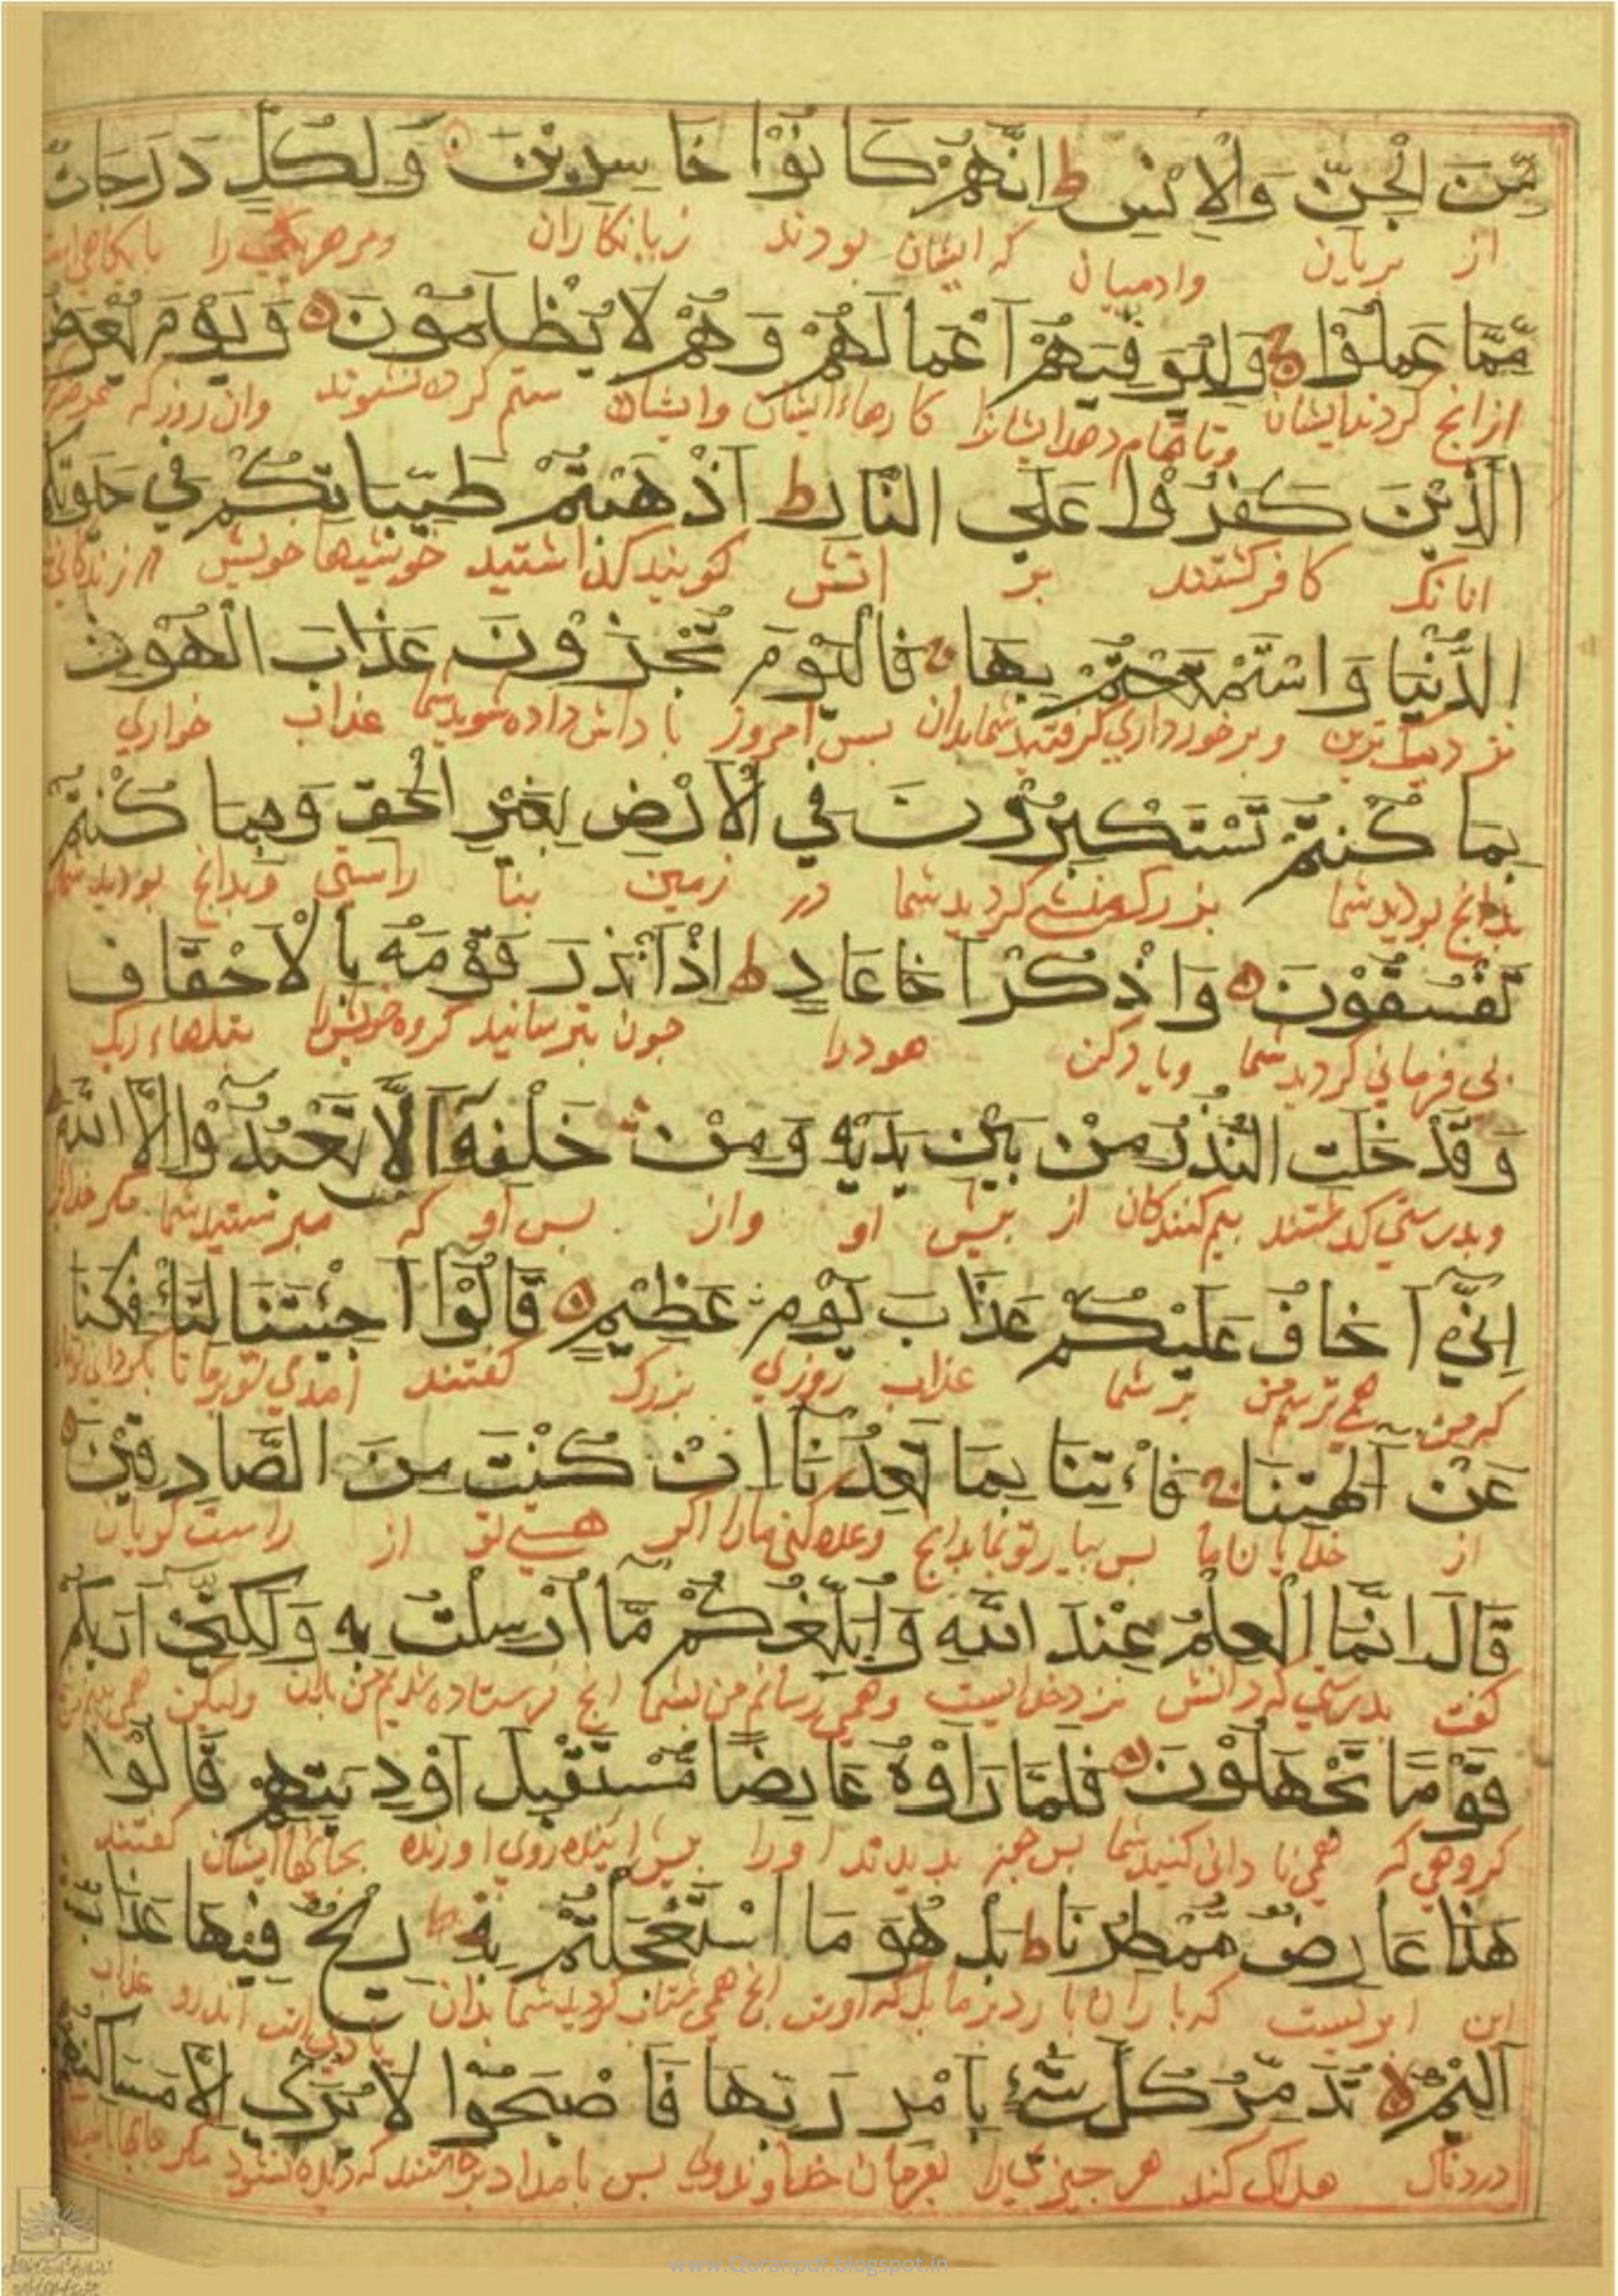 مِّنَ الْجِنِّ وَالْاِنْسِ ط اِنَّهُمْ كَانُوْا خَاسِرِيْنَ وَلِكُلٍّ دَرَجَاتٌ
از پریان وادمیان که ایشان بودند زیانکاران ومرهریکی را
مِّمَّا عَمِلُوْا ج وَلِيُوَفِّيَهُمْ اَعْمَالَهُمْ وَهُمْ لَا يُظْلَمُوْنَ وَيَوْمَ يُعْرَضُ
ازانچ کردند ایشان وتا تمام دهد ایشانرا کارهاء ایشان وایشان ستم کرده نشوند وان روز که
الَّذِيْنَ كَفَرُوْا عَلَي النَّارِ ط اَذْهَبْتُمْ طَيِّبَاتِكُمْ فِي حَيٰوتِكُمُ
انانک کافر گشتند بر اتش گویند گذاشتید خوشیها خویش در زندگانی
الدُّنْيَا وَاسْتَمْتَعْتُمْ بِهَا ج فَالْيَوْمَ تُجْزَوْنَ عَذَابَ الْهُوْنِ
نزدیک ترین وبرخورداری گرفتید شما بدان بس امروز باداش داده شوید شما عذاب خواری
بِمَا كُنْتُمْ تَسْتَكْبِرُوْنَ فِي الْاَرْضِ بِغَيْرِ الْحَقِّ وَبِمَا كُنْتُمْ
بدانج بودید شما بزرگ منشی کردید شما در زمین بنا راستی وبدانج بودید شما
تَفْسُقُوْنَ وَاذْكُرْ اَخَا عَادٍ ط اِذْ اَنْذَرَ قَوْمَهُ بِالْاَحْقَافِ
بی فرمانی کردید شما ویاد کن هود را جون بترسانید گروه خویش را بتلهاء ریگ
وَقَدْ خَلَتِ النُّذُرُ مِنْ بَيْنِ يَدَيْهِ وَمِنْ خَلْفِهِ اَلَّا تَعْبُدُوْا اِلَّا اللّٰهَ
وبدرستی گذشتند بیم کنندگان از پیش او واز بس او که مپرستید شما مگر خدای
اِنِّيْ اَخَافُ عَلَيْكُمْ عَذَابَ يَوْمٍ عَظِيْمٍ قَالُوْا اَجِئْتَنَا لِتَاْفِكَنَا
که من همی ترسم من بر شما عذاب روزی بزرگ گفتند امدی تو برما تا بگردانی
عَنْ اٰلِهَتِنَا ج فَاْتِنَا بِمَا تَعِدُنَا اِنْ كُنْتَ مِنَ الصَّادِقِيْنَ
از خدایان ما بس بیار تو بما بدانج وعده کنی مارا اگر هستی تو از راست گویان
قَالَ اِنَّمَا الْعِلْمُ عِنْدَ اللّٰهِ وَاُبَلِّغُكُمْ مَّا اُرْسِلْتُ بِهِ وَلٰكِنِّيْ اَرٰيكُمْ
گفت بدرستی که دانش نزد خدایست وهمی رسانم من بشما انج فرستاده شدم من بدان ولیکن همی بینم
قَوْمًا تَجْهَلُوْنَ فَلَمَّا رَاَوْهُ عَارِضًا مُّسْتَقْبِلَ اَوْدِيَتِهِمْ قَالُوْا
گروهی که همی نادانی کنید شما بس جون بدیدند اورا روی اورنده ایشان گفتند
هٰذَا عَارِضٌ مُّمْطِرُنَا ط بَلْ هُوَ مَا اسْتَعْجَلْتُمْ بِهِ ط رِيْحٌ فِيْهَا عَذَابٌ
این ابریست که باران بارد برما بلکه اوست انج همی شتاب کردید شما بدان بادیست اندرو عذاب
اَلِيْمٌ لا تُدَمِّرُ كُلَّ شَيْءٍ بِاَمْرِ رَبِّهَا فَاَصْبَحُوْا لَا يُرٰي اِلَّا مَسَاكِنُهُمْ
دردناک هلاک کند هر جیزی را بفرمان خداوند وی بس بامداد برخاستند که دیده نشود مگر جایها
www.Quranpdf.blogspot.in